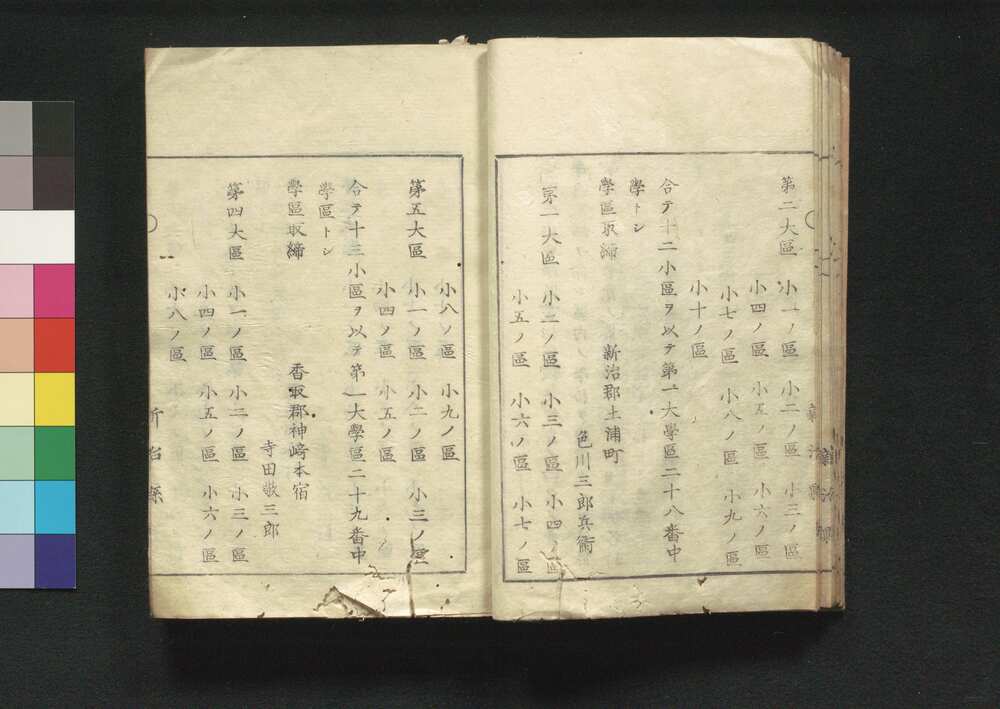 第二大區　小一ノ區　小二ノ區　小三ノ區
小四ノ區　小五ノ區　小六ノ區
小七ノ區　小八ノ區　小九ノ區
小十ノ區
合テ十二小區ヲ以テ第一大學區二十八番中
學トシ
學區取締　新治郡土浦町
色川三郎兵衛
第一大區　小二ノ區　小三ノ區　小四ノ區
小五ノ區　小六ノ區　小七ノ區
小八ノ區　小九ノ區
第五大區　小一ノ區　小二ノ區　小三ノ區
小四ノ區　小五ノ區
合テ十三小區ヲ以テ第一大學區二十九番中
學區トシ
學區取締　香取郡神﨑本宿
寺田敬三郎
第四大區　小一ノ區　小二ノ區　小三ノ區
小四ノ區　小五ノ區　小六ノ區
小八ノ區